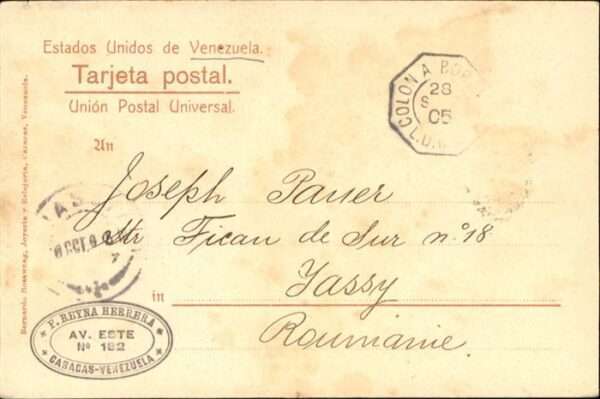 Estados Unidos de Venezuela.
Tarjeta postal.
Unión Postal Universal.
COLON A
28
S
05
L.D.
An
Joseph
Str. Ticau de Sur nº 18
in Yassy
Roumanie.
P. REYNA HERRERA
AV. ESTE
Nº 182
CARACAS-VENEZUELA
Bernardo Mosewng, Joyería y Relojería, Caracas, Venezuela.